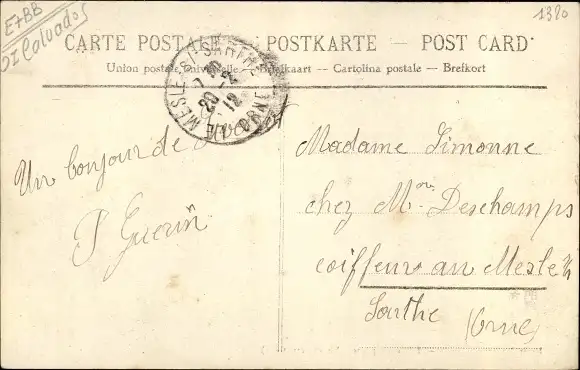 E7BB
OI Calvados
1380
CARTE POSTALE — POSTKARTE — POST CARD
Union postale universelle — Briefkaart — Cartolina postale — Brefkort
LE MESLE S SARTHE
20 -2
12
ORNE
Un bonjour de
P Guerin
Madame Simonne
chez Mr Deschamps
coiffeur au Mesle s/
Sarthe (Orne)